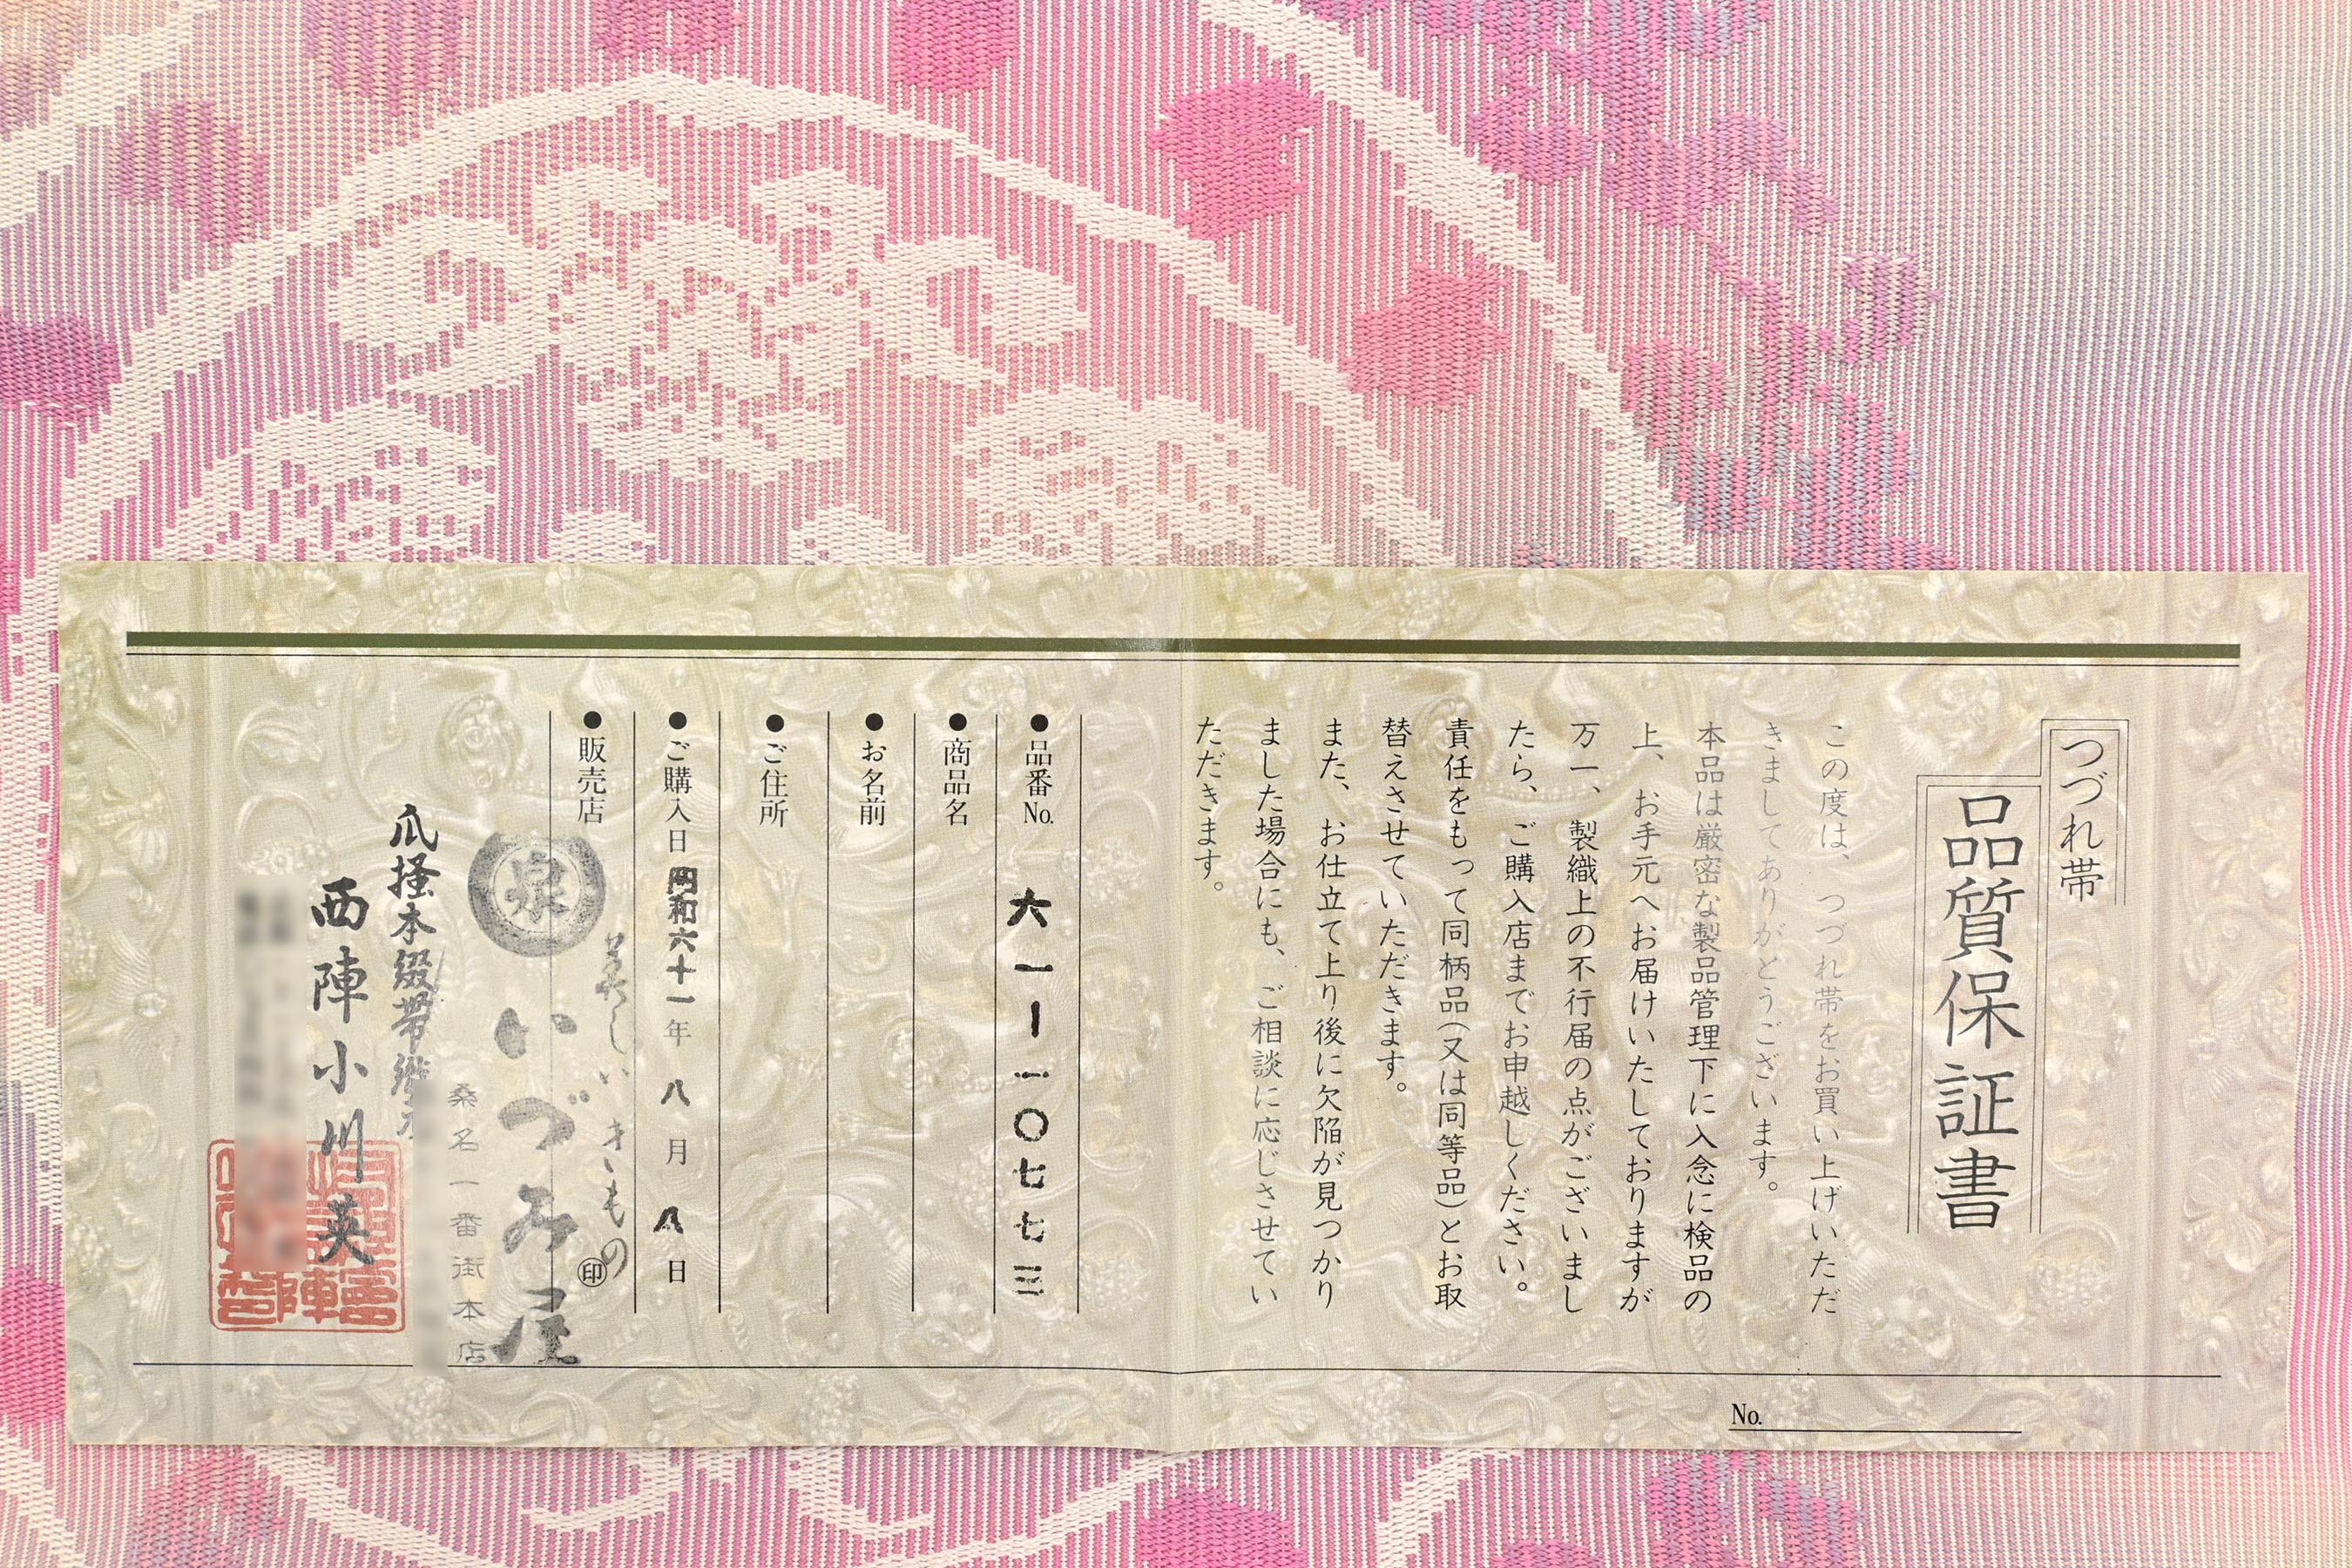 つづれ帯
品質保証書
この度は、つづれ帯をお買い上げいただ
きましてありがとうございます。
本品は厳密な製品管理下に入念に検品の
上、お手元へお届けいたしておりますが
万一、製織上の不行届の点がございまし
たら、ご購入店までお申越しください。
責任をもって同柄品(又は同等品)とお取
替えさせていただきます。
また、お仕立て上り後に欠陥が見つかり
ました場合にも、ご相談に応じさせてい
ただきます。
No.
●品番No. 六一ー一〇七七三
●商品名
●お名前
●ご住所
●ご購入日 昭和六十一年 八月 八日
●販売店 ㊞
美しいきもの
泉 いづみ屋
桑名一番街本店
爪掻本綴帯
西陣小川英